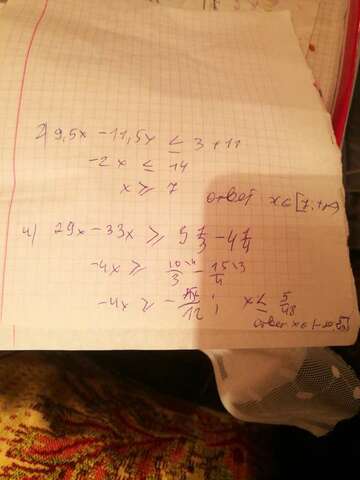 2) 9,5x - 11,5x ≤ 3 + 11
-2x ≤ 14
x ≥ 7
ответ x ∈ [7; +∞)
4) 29x - 33x ≥ 3 1/3 - 4 1/4
-4x ≥ 10/3 - 15/4
-4x ≥ - /12 ; x ≤ 5/48
ответ x ∈